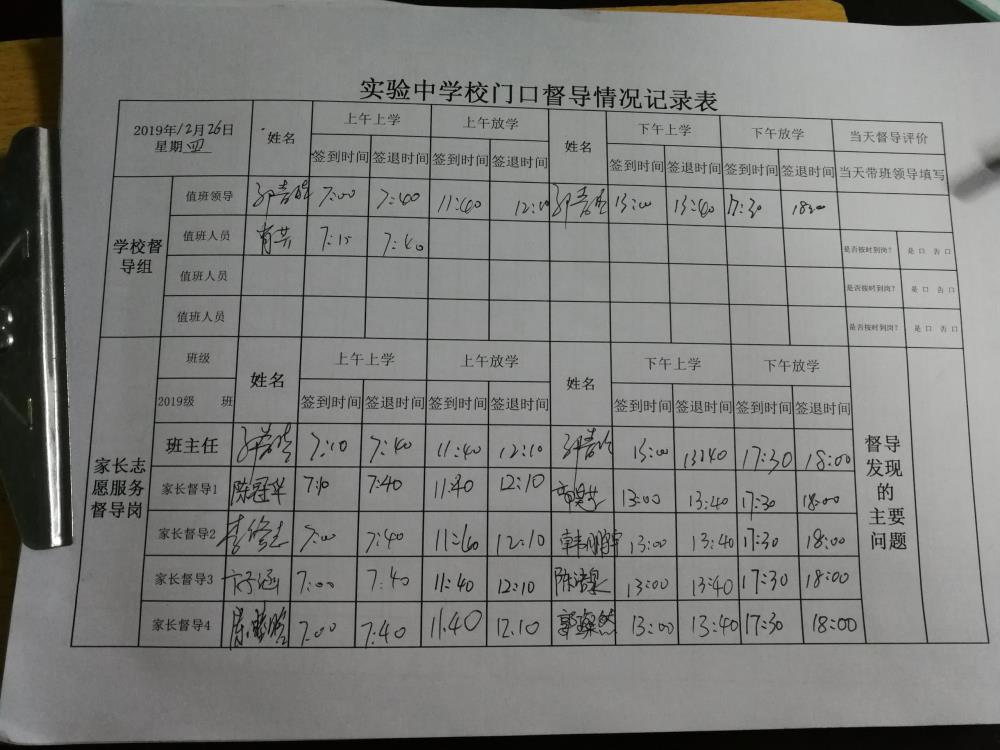 实验中学校门口督导情况记录表
2019年12月26日
星期四
姓名 上午上学 上午放学 姓名 下午上学 下午放学 当天督导评价
签到时间 签退时间 签到时间 签退时间 签到时间 签退时间 签到时间 签退时间 当天带班领导填写
学校督导组
值班领导 7:00 7:40 11:40 12:10 13:00 13:40 17:30 18:00
值班人员 7:15 7:40 是否按时到岗? 是 口 否 口
值班人员 是否按时到岗? 是 口 否 口
值班人员 是否按时到岗? 是 口 否 口
班级 姓名 上午上学 上午放学 姓名 下午上学 下午放学
2019级 班 签到时间 签退时间 签到时间 签退时间 签到时间 签退时间 签到时间 签退时间
家长志愿服务督导岗
班主任 7:10 7:40 11:40 12:10 13:00 13:40 17:30 18:00
家长督导1 陈冠华 7:10 7:40 11:40 12:10 13:00 13:40 17:30 18:00
家长督导2 7:00 7:40 11:40 12:10 13:00 13:40 17:30 18:00
家长督导3 7:00 7:40 11:40 12:10 13:00 13:40 17:30 18:00
家长督导4 7:00 7:40 11:40 12:10 13:00 13:40 17:30 18:00
督导发现的主要问题